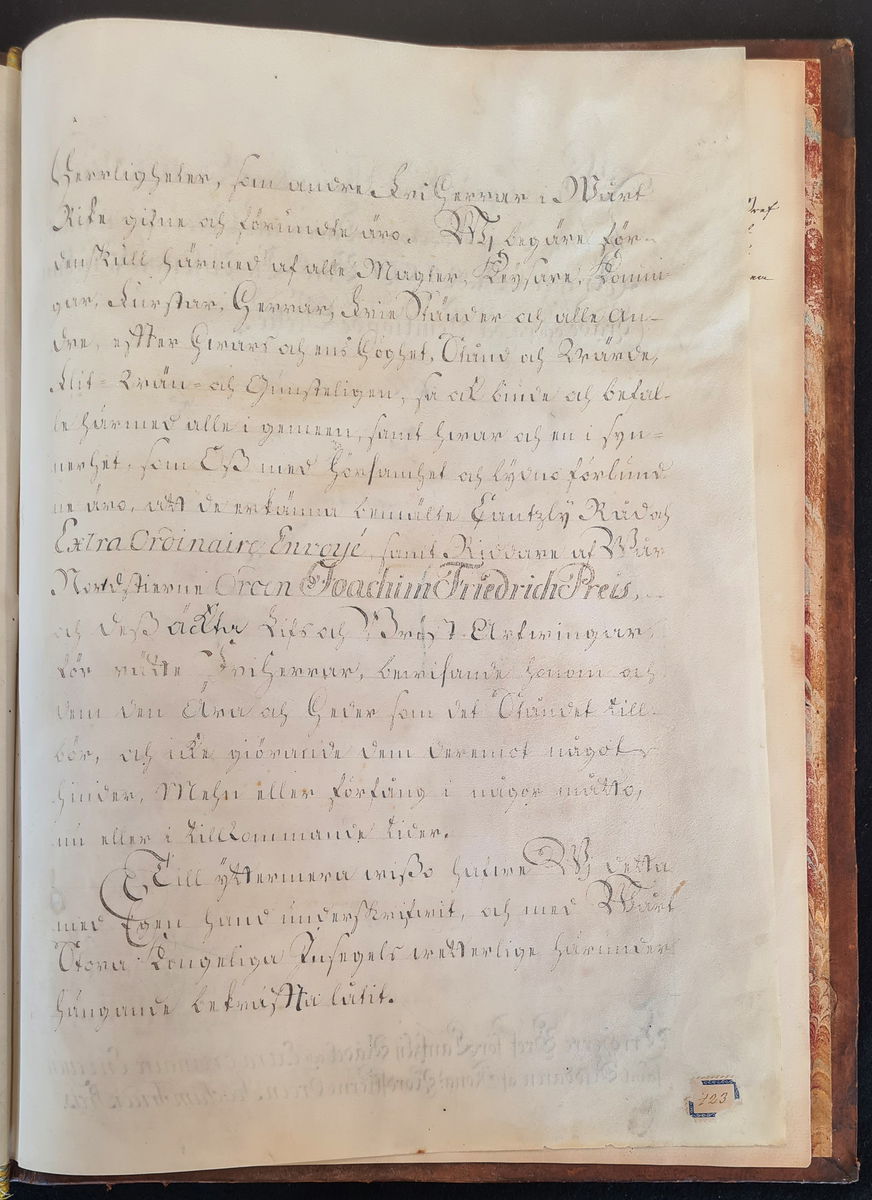 Herrligheter, som andre FriHerrar i Wårt
Rike gifne och förundte äro. Wij begäre för-
denskull härmed af alle Magter, Keysare, Konun-
gar, Furstar, Herrar, Frie Ständer och alle An-
dre, effter hwars och ens Höghet, Stånd och Wärde,
Flit- Wän- och Gunsteligen, så ock biude och befal-
le härmed alle i gemeen, samt hwar och en i syn-
nerhet, som Oß med hörsamhet och lydno förbund-
ne äro, att de erkänna bemälte Cantzly Råd och
Extra Ordinaire Envoyé, samt Riddare af Wår
Nordstierne Orden Joachim Friedrich Preis,
och deß äckta Lifs och Bröst-Arfwingar
för rätte FriHerrar, bewisande honom och
dem den Ära och Heder som det Ståndet till-
bör, och icke giörande dem deremot något
hinder, Mehn eller förfång i någor måtto,
nu eller i tillkommande tider.
Till yttermera wißo hafwe Wij detta
med Egen hand underskrifwit, och med Wårt
Stora Kongeliga Insegels wetterlige härunder
hängande bekräffta låtit.
123